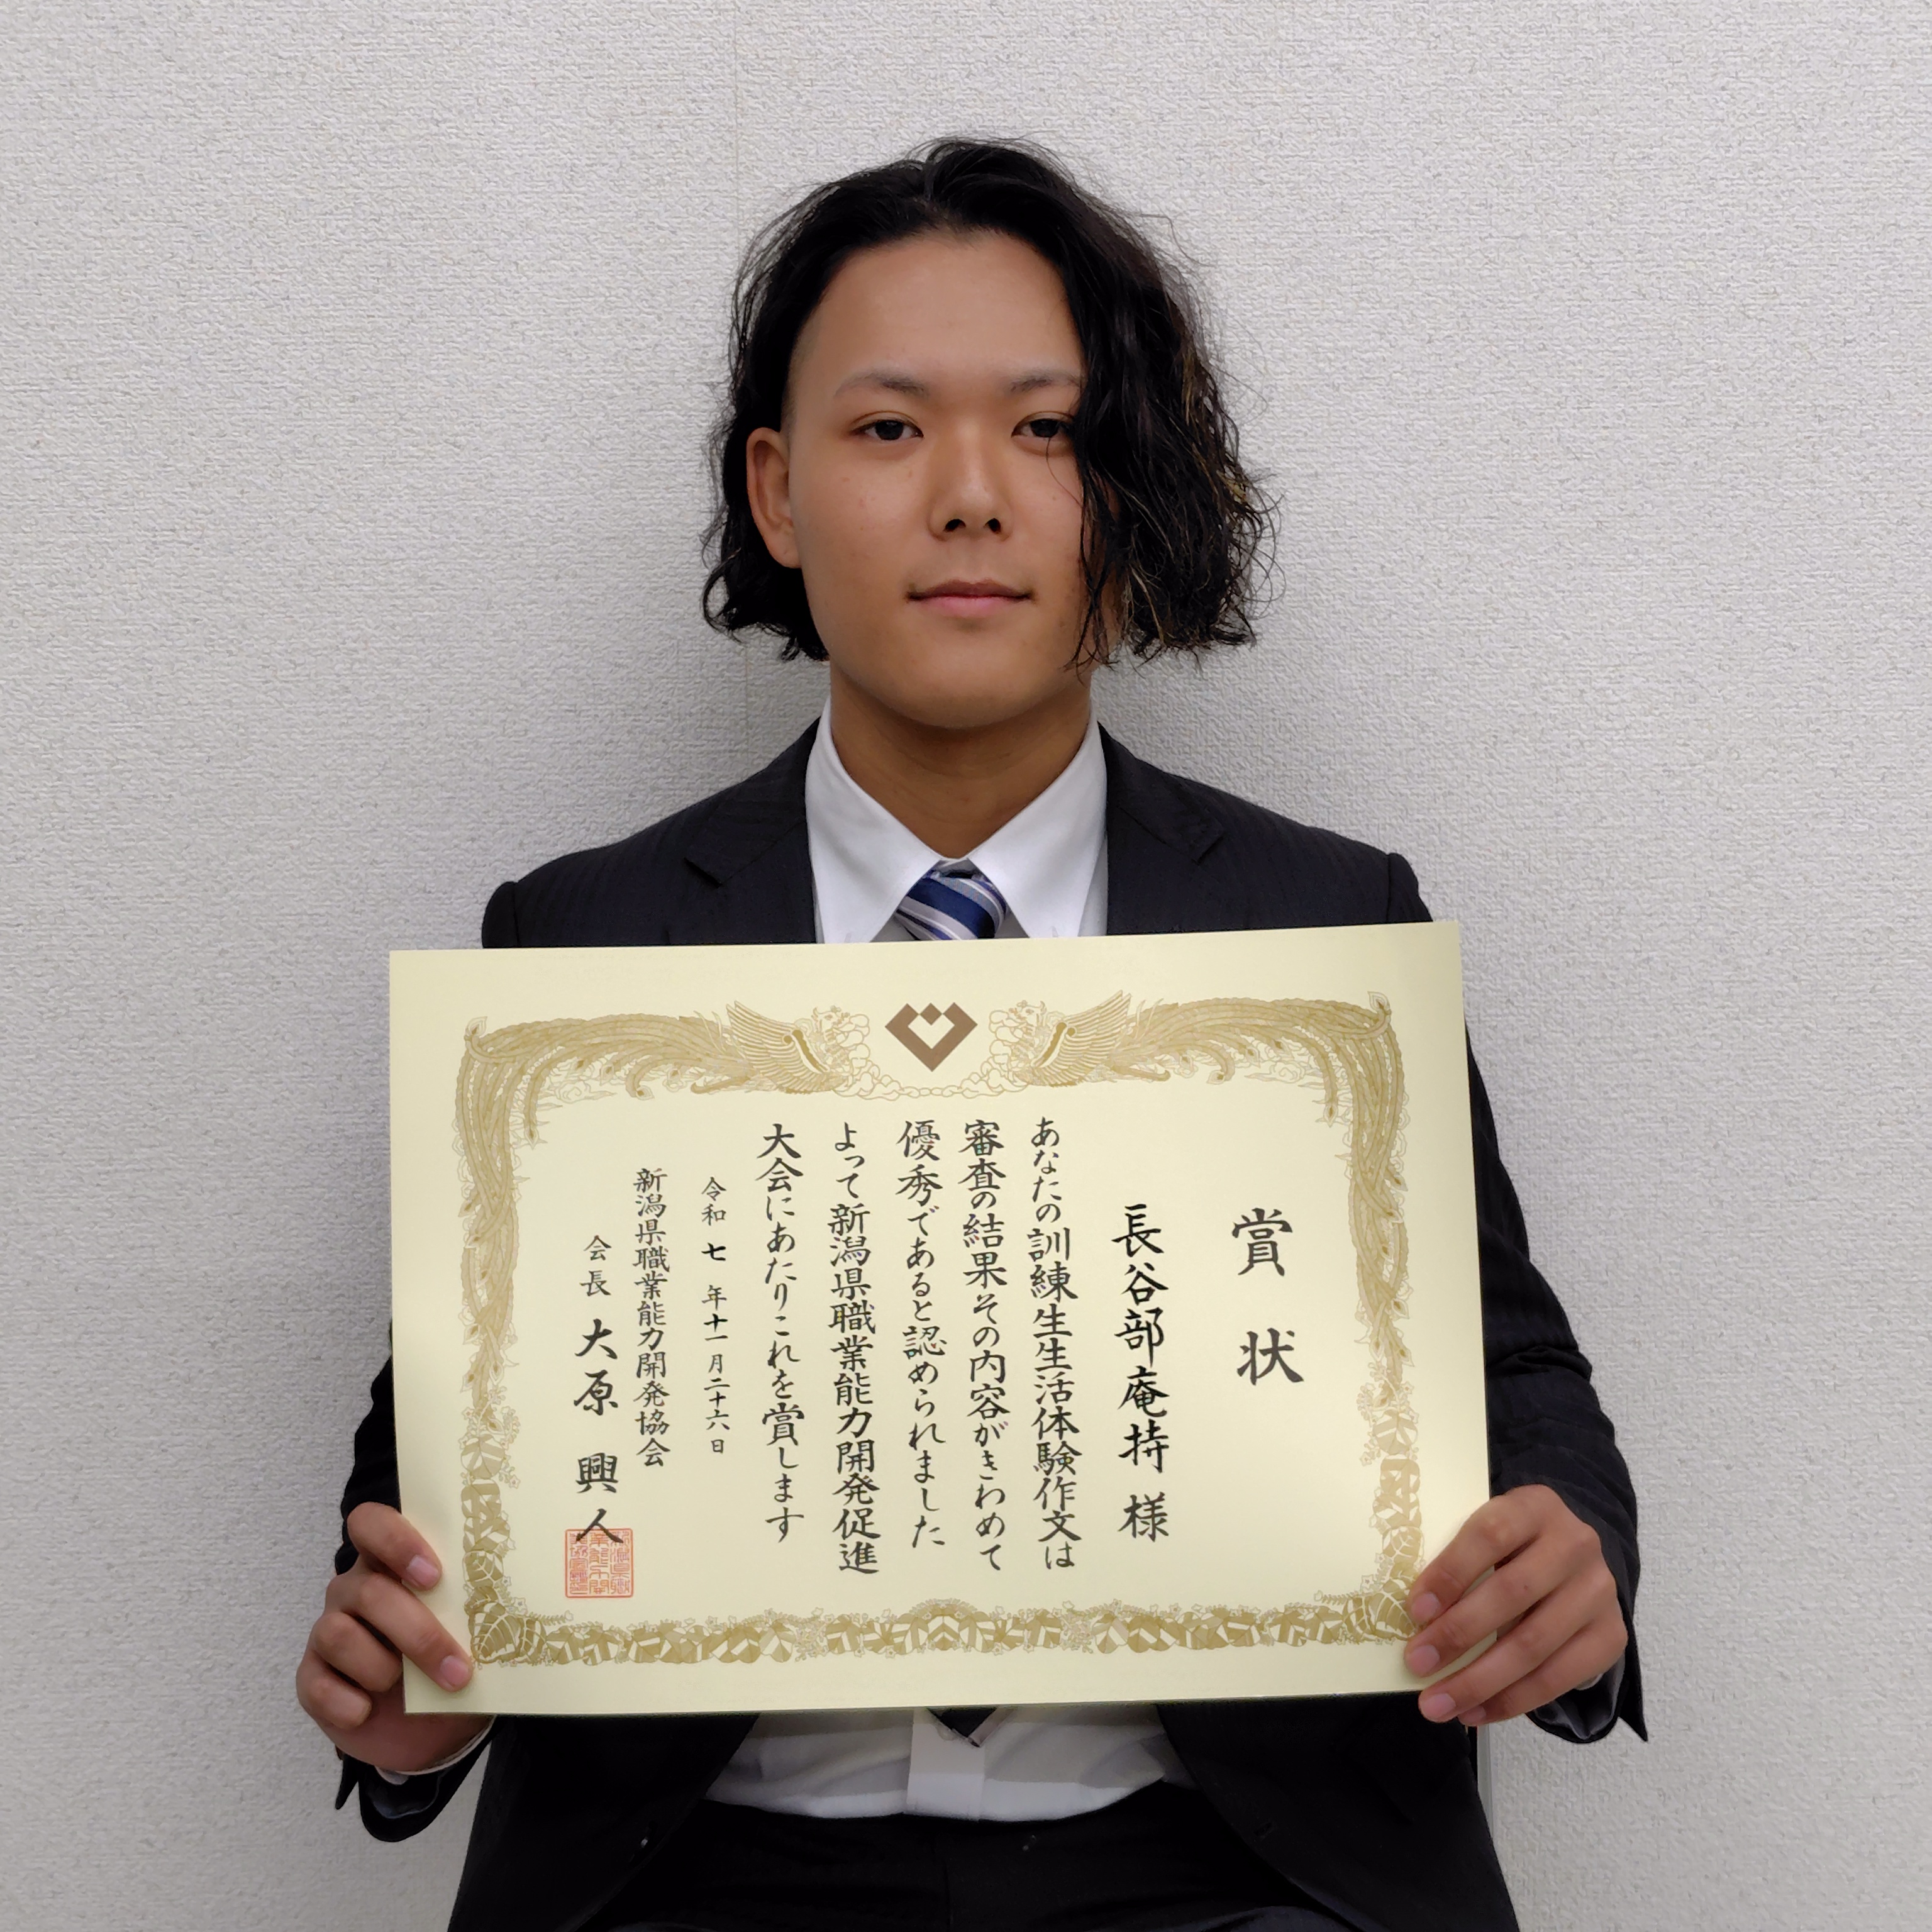 賞状
長谷部庵持 様
あなたの訓練生生活体験作文は
審査の結果その内容がきわめて
優秀であると認められました
よって新潟県職業能力開発促進
大会にあたりこれを賞します
令和七年十一月二十六日
新潟県職業能力開発協会
会長 大原興人